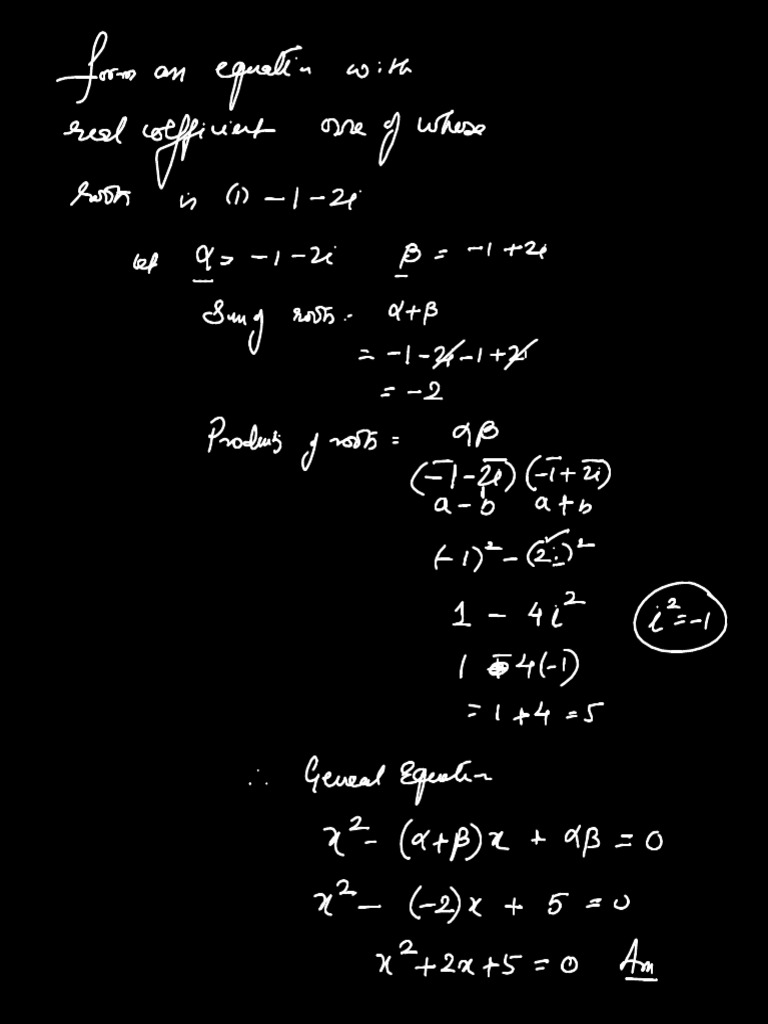 form an equation with
real coefficient one of whose
roots is (1) -1-2i
let α = -1-2i β = -1+2i
Sum of roots = α+β
= -1-2i-1+2i
= -2
Products of roots = αβ
(-1-2i) (-1+2i)
a-b a+b
(-1)² - (2i)²
1 - 4i² i²=-1
1 - 4(-1)
= 1+4 = 5
∴ General Equation
x² - (α+β)x + αβ = 0
x² - (-2)x + 5 = 0
x²+2x+5 = 0 Ans